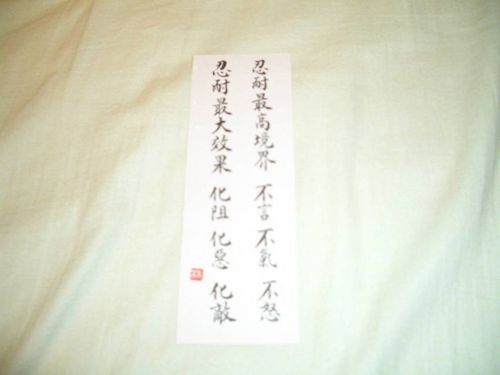 忍耐最高境界 不言 不氣 不怒
忍耐最大效果 化阻 化惡 化敵